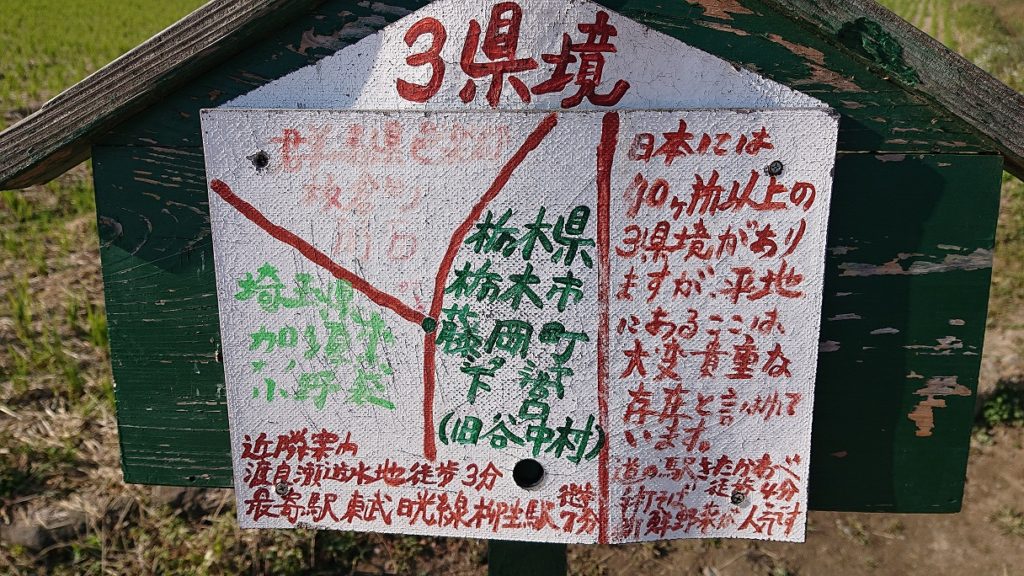 3県境
群馬県邑楽郡
板倉町
埼玉県
加須市
小野袋
栃木県
栃木市
藤岡町
下宮
(旧谷中村)
日本には
40ヶ所以上の
3県境があり
ますが、平地
にあるここは、
大変貴重な
存在と言われて
います。
道の駅きたかわべ
徒歩4分
新鮮野菜が人気です
近隣案内
渡良瀬遊水地徒歩3分
最寄駅東武日光線柳生駅
徒歩
7分